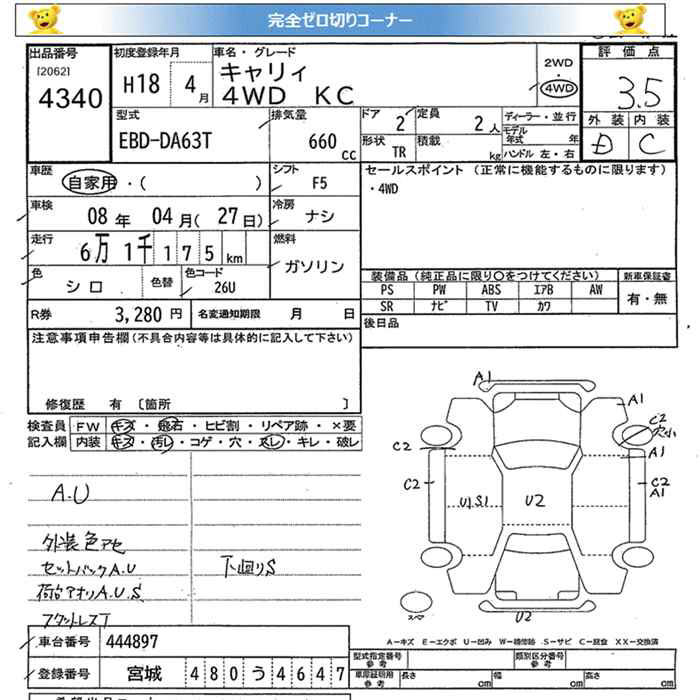 完全ゼロ切りコーナー
出品番号
[2062]
4340
初度登録年月
H18 4月
車名・グレード
キャリィ
4WD KC
2WD
・
4WD
評価点
3.5
外装 内装
D C
型式
EBD-DA63T
排気量
660 cc
ドア
2
定員
2人
形状
TR
積載
kg
ディーラー・並行
モデル年式 年
ハンドル 左・右
車歴
自家用・( )
シフト
F5
セールスポイント (正常に機能するものに限ります)
・4WD
車検
08年 04月(27日)
冷房
ナシ
走行
6万1千175km
燃料
ガソリン
色
シロ
色替
色コード
26U
装備品(純正品に限り○をつけてください)
新車保証書
PS PW ABS エアB AW
SR ナビ TV カワ
有・無
R券 3,280円
名変通知期限 月 日
後日品
注意事項申告欄(不具合内容等は具体的に記入して下さい)
修復歴 有 〔箇所 〕
検査員記入欄
FW キズ・飛石・ヒビ割・リペア跡・×要
内装 キズ・汚レ・コゲ・穴・スレ・キレ・破レ
A.U
外装色アセ
セットバックA.U
荷台アオリA.U.S
フタットレスT
下廻りS
A1
A1
C2
穴小
A1
C2
C2
C2
A1
U1 S1
U2
U2
スペア
A-キズ E-エクボ U-凹み W-補修跡 S-サビ C-腐食 XX-交換済
車台番号 444897
登録番号 宮城 480う4647
型式指定番号
参考
類別区分番号
参考
車庫証明用
参考
長さ cm 幅 cm 高さ cm